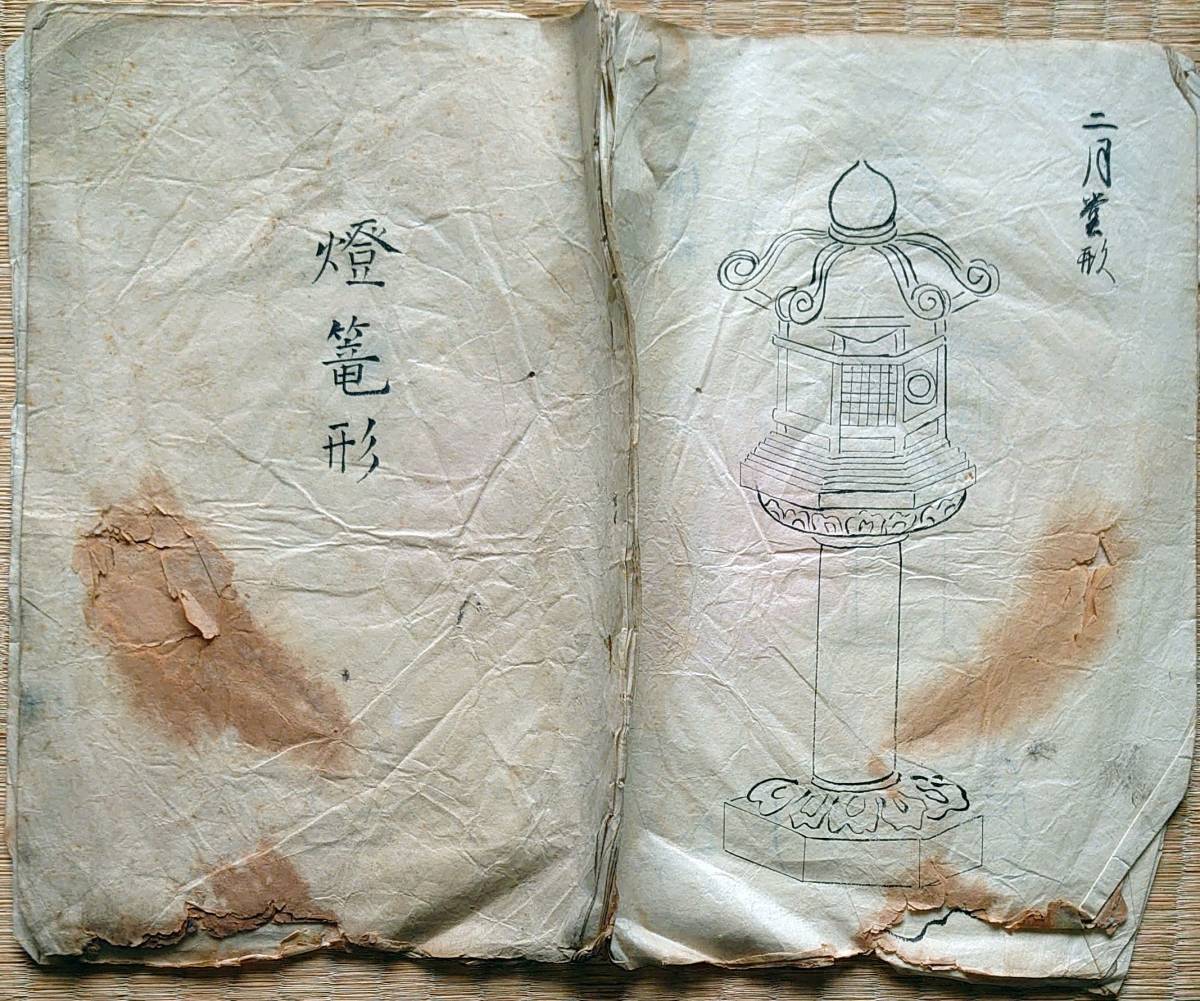 二月堂形
燈篭形